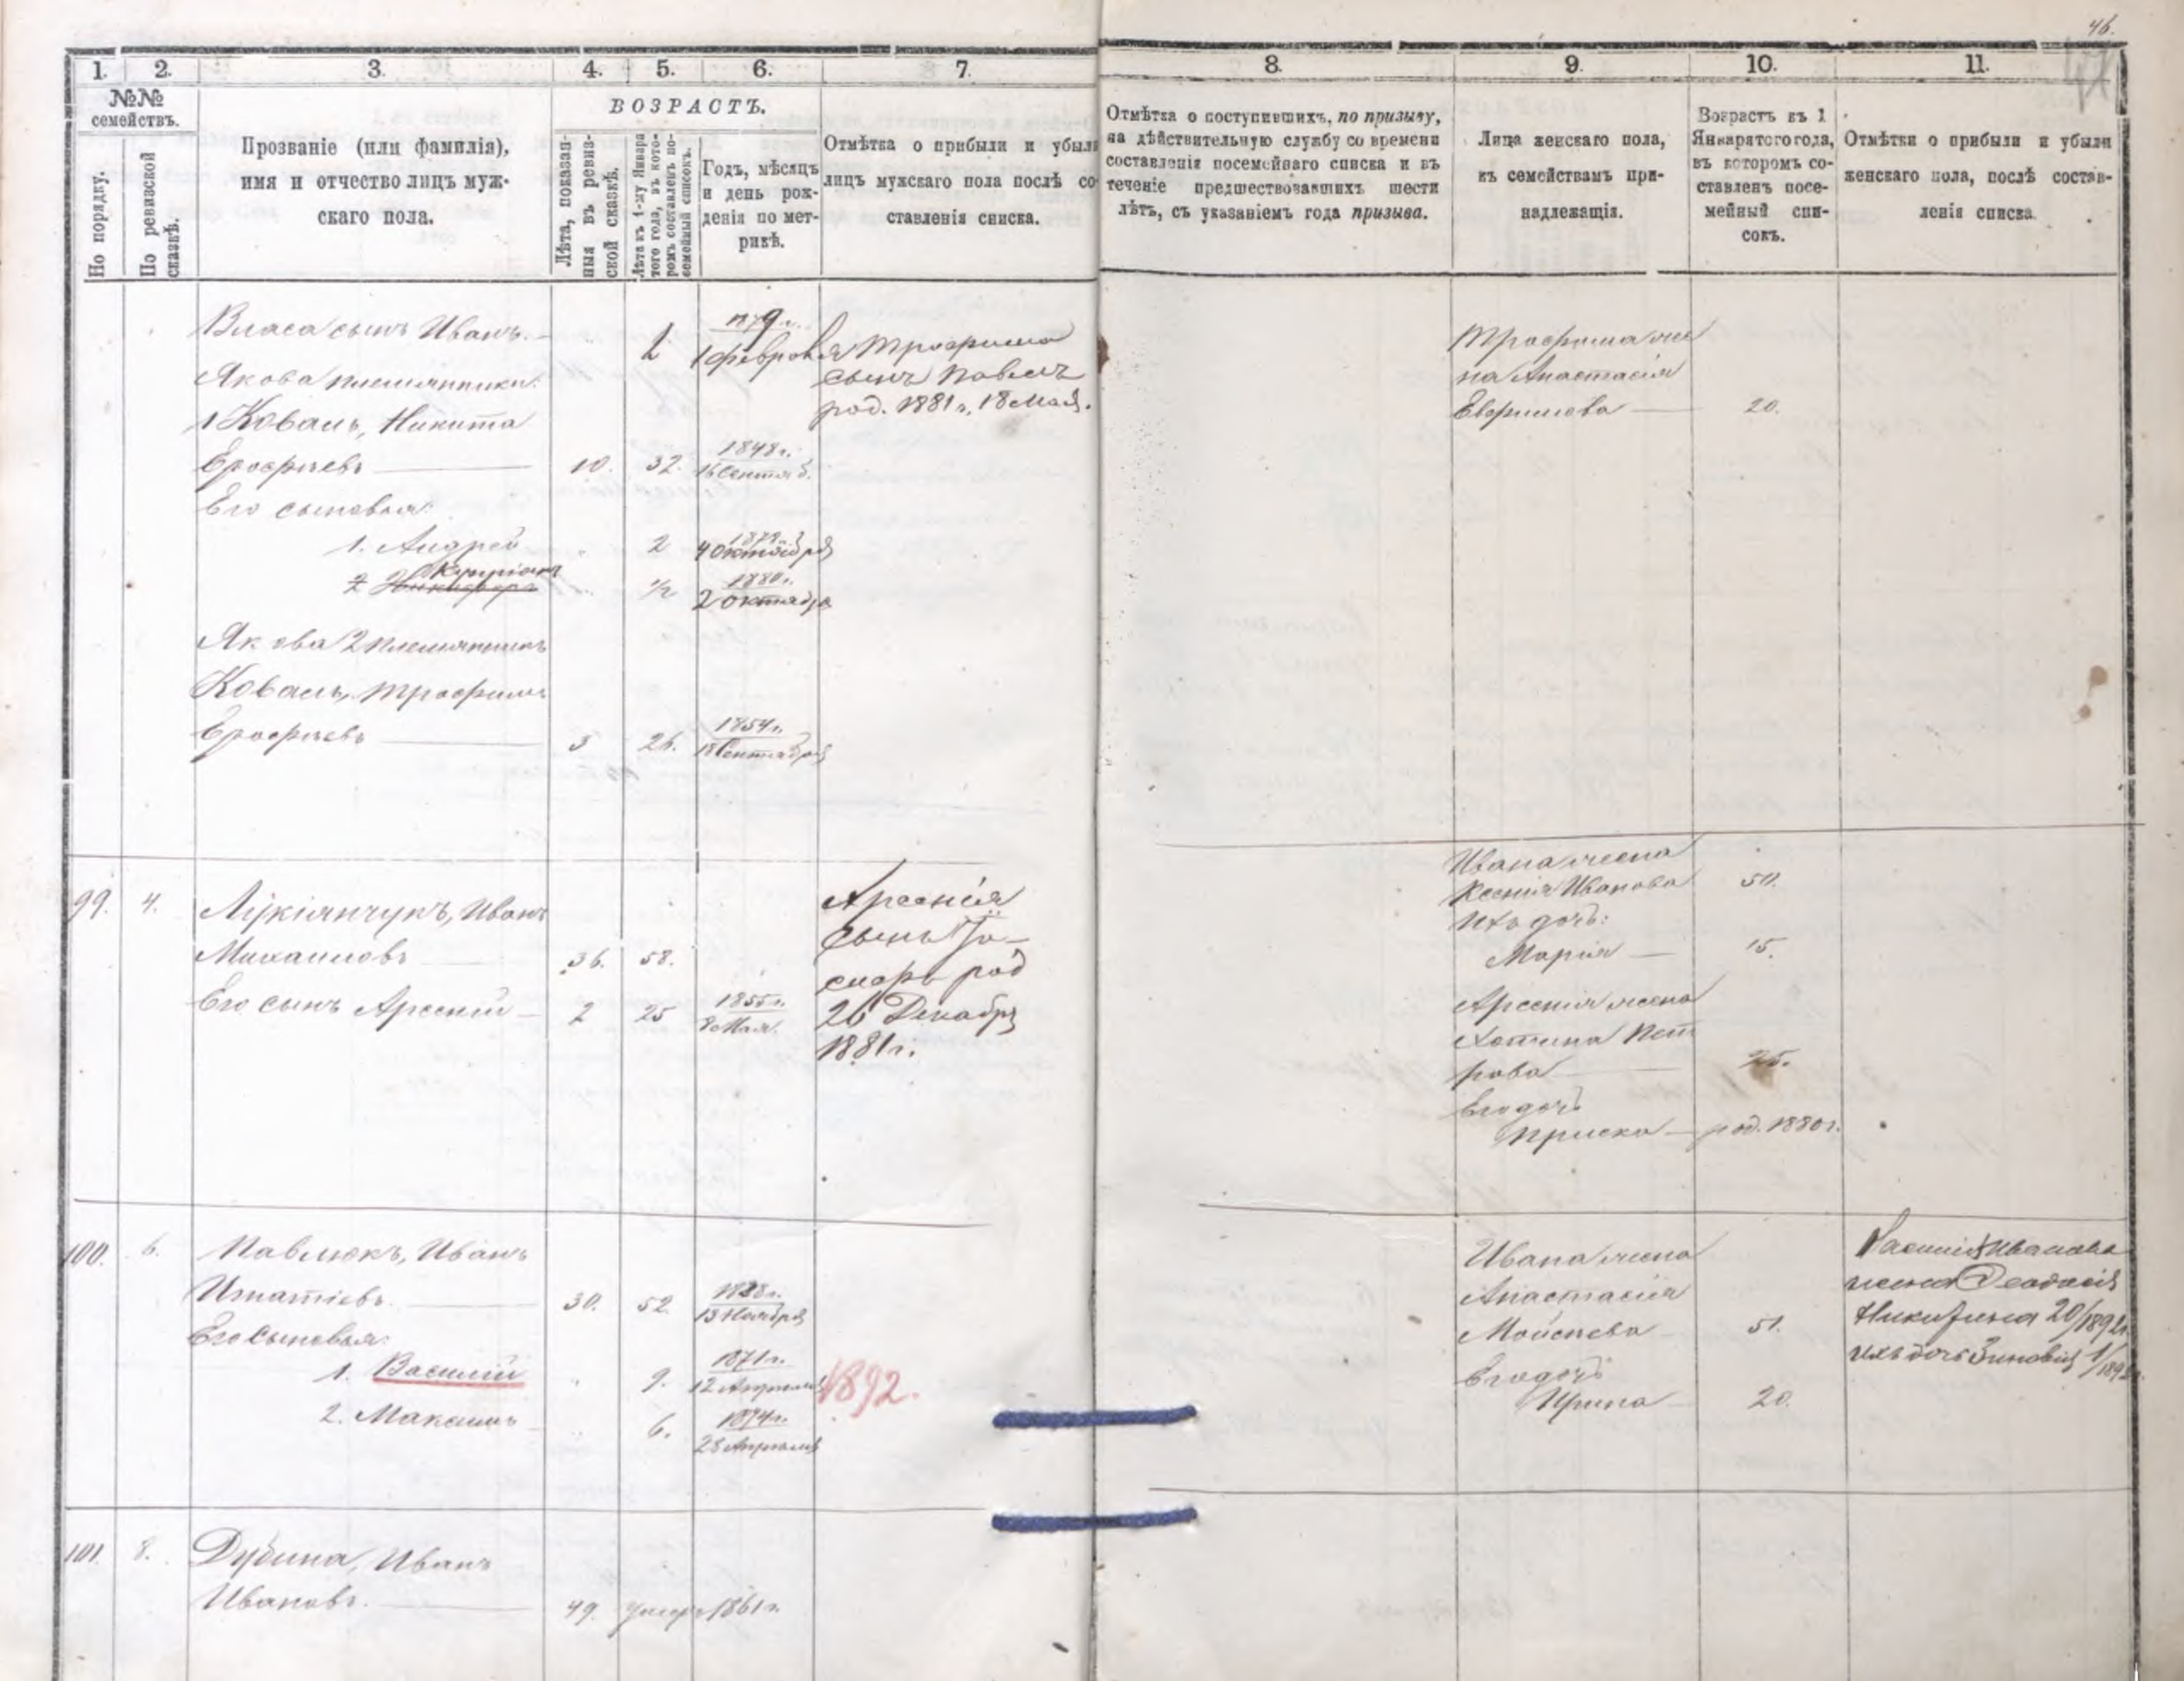 46.
47
1. 2. 3. 4. 5. 6. 7. 8. 9. 10. 11.
№№ семействъ.
По порядку.
По ревизской сказкѣ.
Прозваніе (или фамилія),
имя и отчество лицъ муж-
скаго пола.
ВОЗРАСТЪ.
Лѣта, показан-
ныя въ ревиз-
ской сказкѣ.
Лѣта къ 1-му Января
того года, въ кото-
ромъ составленъ по-
семейный списокъ.
Годъ, мѣсяцъ
и день рож-
денія по мет-
рикѣ.
Отмѣтка о прибыли и убыли
лицъ мужскаго пола послѣ со-
ставленія списка.
Отмѣтка о поступившихъ, по призыву,
на дѣйствительную службу со времени
составленія посемейнаго списка и въ
теченіе предшествовавшихъ шести
лѣтъ, съ указаніемъ года призыва.
Лица женскаго пола,
къ семействамъ при-
надлежащія.
Возрастъ къ 1
Января того года,
въ которомъ со-
ставленъ посе-
мейный спи-
сокъ.
Отмѣтки о прибыли и убыли
женскаго пола, послѣ состав-
ленія списка.
Власа сынъ Иванъ.
1 февраля
Трофима
сынъ Павелъ
род. 1881 г. 18 Мая.
Трофима же
на Анастасія
Евфимова — 20.
Якова племянники:
1 Коваль, Никита
Ерофѣевъ — 10. 32. 1848 г.
16 Сентяб.
Его сыновья:
1. Андрей 2
4 Октября
2 Никифоръ Купріянъ ½ 1880 г.
2 Октября
Якова 2 племянникъ
Коваль, Трофимъ
Ерофѣевъ — 3 26. 1854 г.
18 Сентября
99. 4. Лукіянчукъ, Иванъ
Михаиловъ — 36. 58.
Его сынъ Арсеній — 2 25 1855 г.
8 Мая.
Арсенія
сынъ Іо-
сифъ род
26 Декабря
1881 г.
Ивана жена
Ксенія Иванова 50.
Ихъ дочь:
Марія — 15.
Арсенія жена
Хотина Пет
рова — 25.
Его дочь
Приска — род. 1880 г.
100. 6. Павлюкъ, Иванъ
Игнатіевъ. — 30. 52. 1828 г.
13 Ноября
Его сыновья:
1. Василій 9. 1871 г.
12 Апрѣля
1892.
2. Максимъ 6. 1874 г.
28 Апрѣля
Ивана жена
Анастасія
Моисѣева 51.
Его дочь
Ирина 20.
Василія Иванова
жена Феодосія
Никитина 20/1892 г.
ихъ дочь Зиновія
101. 8. Дубина, Иванъ
Ивановъ. — 49. Умеръ 1861 г.